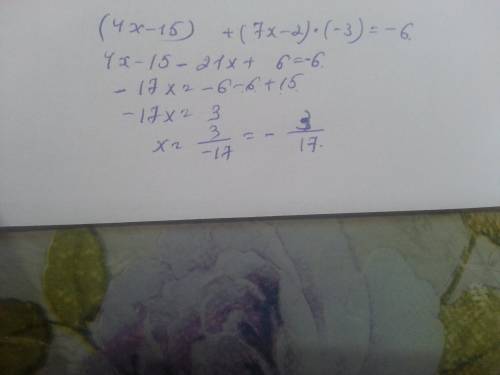 (4x-15) +(7x-2)·(-3)=-6
4x-15-21x+ 6=-6
-17x=-6-6+15
-17x= 3
x= 3/-17 = - 3/17.